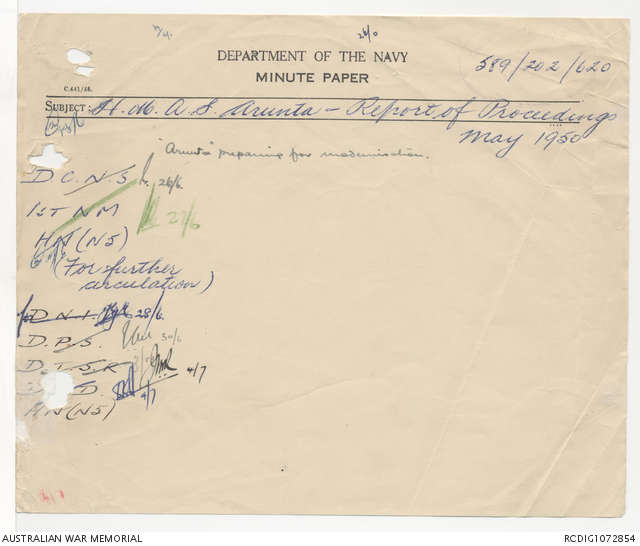 26/0
DEPARTMENT OF THE NAVY
MINUTE PAPER
C.441/48.
589/202/620
SUBJECT: H.M.A.S Arunta – Report of Proceedings
May 1950
"Arunta" preparing for modernisation.
D.C.N.S 26/6.
1ST NM 27/6
HN(NS)
(For further
circulation)
D.N.I. 28/6.
D.P.S. 30/6
D.T.S.R 4/7
D. 4/7
HN(NS)
AUSTRALIAN WAR MEMORIAL
RCDIG1072854